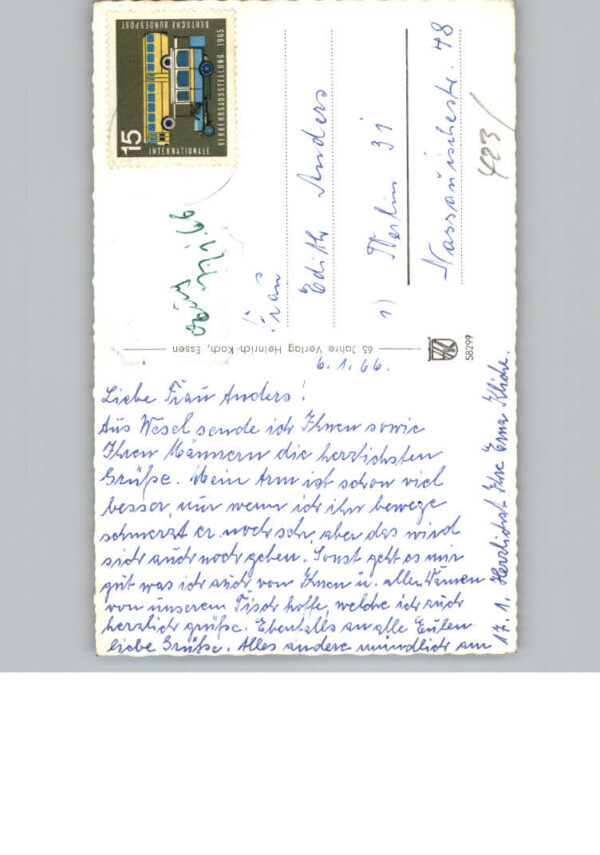 6.1.66.
Liebe Frau Anders!
Aus Wesel sende ich Ihnen sowie
Ihren Männern die herzlichsten
Grüße. Mein Arm ist schon viel
besser, nur wenn ich ihn bewege
schmerzt er noch sehr, aber das wird
sich auch noch geben. Sonst geht es mir
gut was ich auch von Ihnen u. allen
von unserem Tisch hoffe, welche ich auch
herzlich grüße. Ebenfalls an alle Eulen
liebe Grüße. Alles andere mündlich am
17.1. Herzlichst Ihre Erna
65 Jahre Verlag Heinrich Koch, Essen
58299
DEUTSCHE BUNDESPOST
INTERNATIONALE
VERKEHRSAUSSTELLUNG 1965
15
Frau
Edith Anders
1) Berlin 31
Nassauischestr. 48
423/